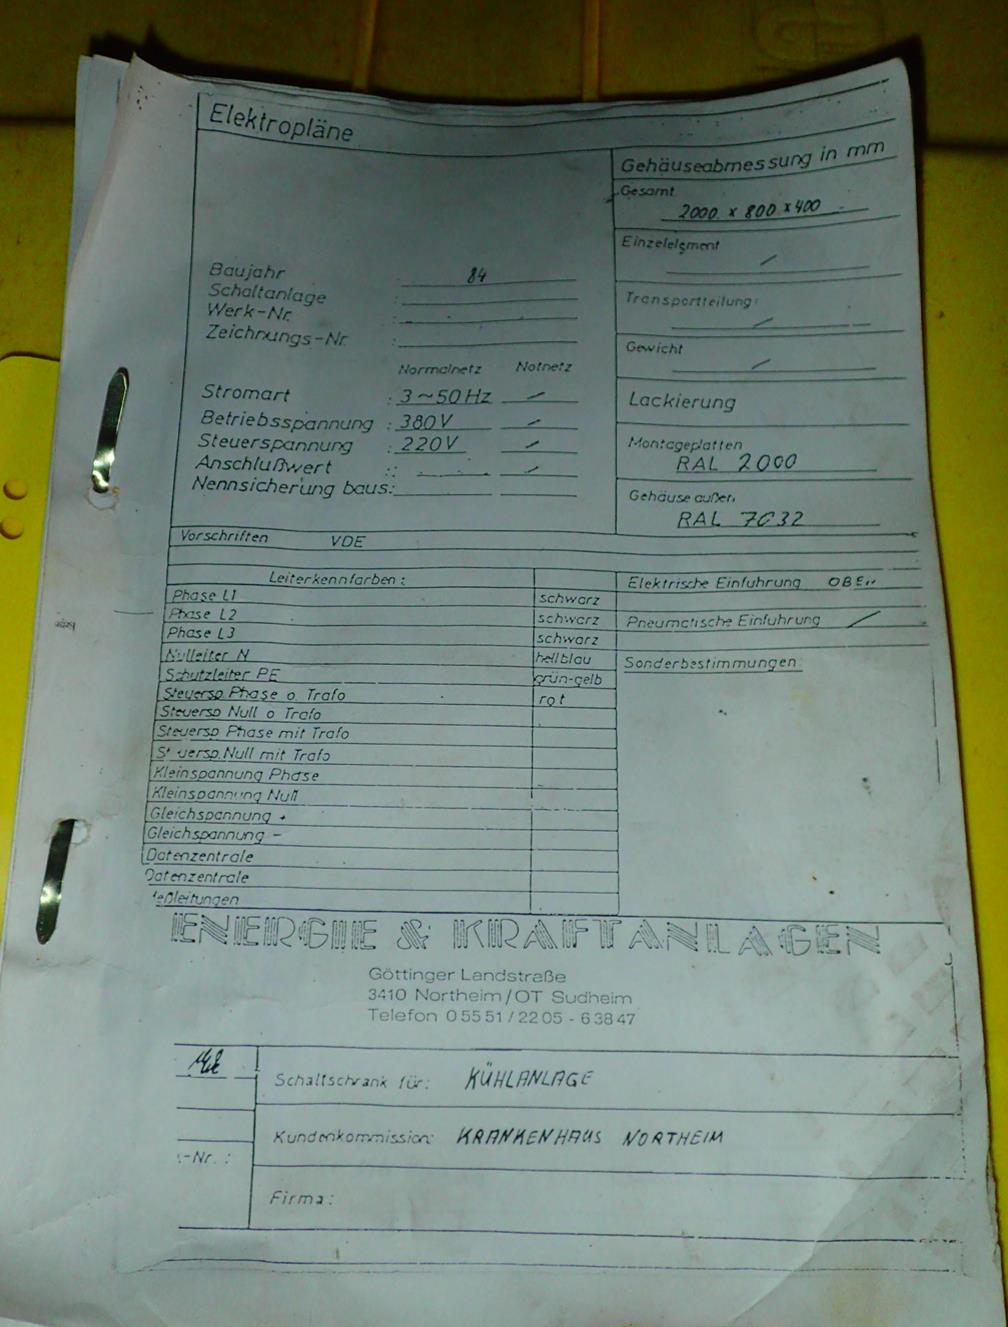 Elektropläne
Gehäuseabmessung in mm
Gesamt
2000 x 800 x 400
Einzelelement
Transportteilung:
Gewicht
Lackierung
Montageplatten
RAL 2000
Gehäuse außen
RAL 7032
Baujahr 84
Schaltanlage :
Werk-Nr. :
Zeichnungs-Nr. :
Normalnetz Notnetz
Stromart : 3~50Hz
Betriebsspannung : 380V
Steuerspannung : 220V
Anschlußwert :
Nennsicherung baus.:
Vorschriften VDE
Leiterkennfarben:
Phase L1 schwarz
Phase L2 schwarz
Phase L3 schwarz
Nulleiter N hellblau
Schutzleiter PE grün-gelb
Steuersp Phase o. Trafo rot
Steuersp Null o Trafo
Steuersp Phase mit Trafo
Steuersp. Null mit Trafo
Kleinspannung Phase
Kleinspannung Null
Gleichspannung +
Gleichspannung -
Datenzentrale
Datenzentrale
eßleitungen
Elektrische Einführung OBEN
Pneumatische Einführung
Sonderbestimmungen:
ENERGIE & KRAFTANLAGEN
Göttinger Landstraße
3410 Northeim/OT Sudheim
Telefon 05551/2205-63847
Schaltschrank für: KÜHLANLAGE
Kundenkommission: KRANKENHAUS NORTHEIM
-Nr. :
Firma: